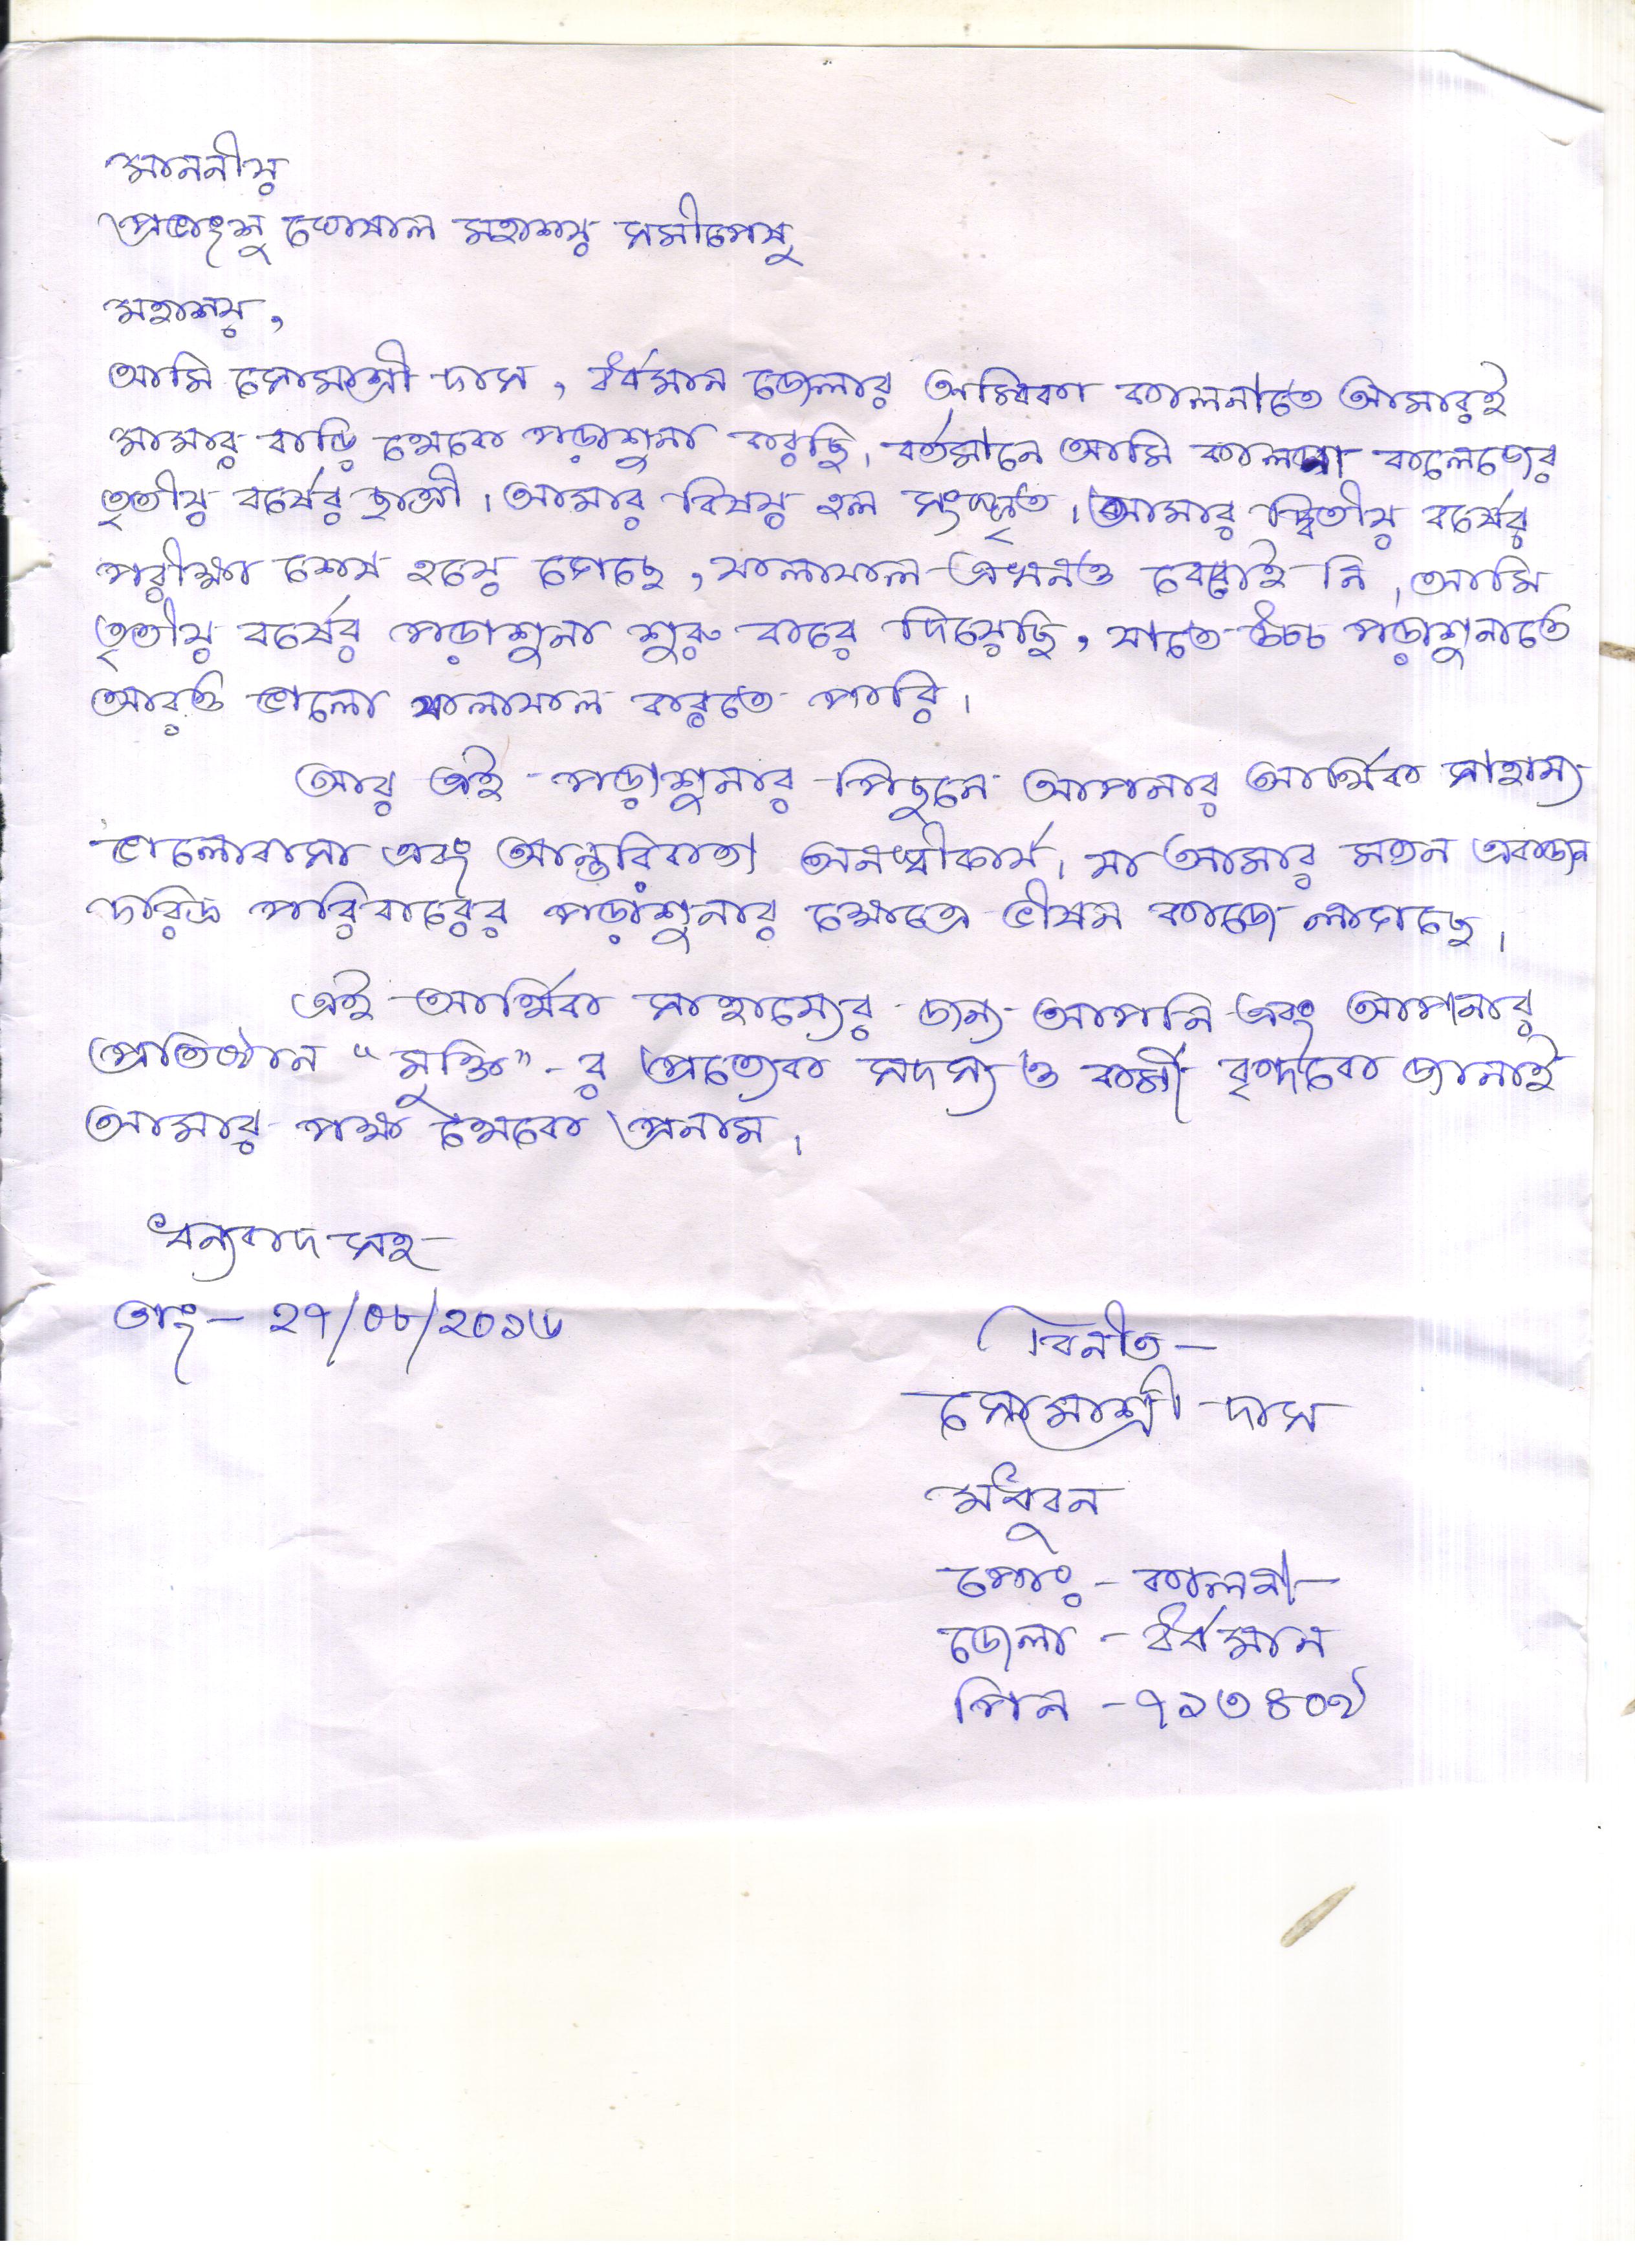 মাননীয়
প্রভাংশু ঘোষাল মহাশয় সমীপেষু
মহাশয়,
আমি সোমাশ্রী দাস, বর্ধমান জেলার অম্বিকা কালনাতে আমারই
মামার বাড়ি থেকে পড়াশুনা করছি। বর্তমানে আমি কালনা কলেজের
তৃতীয় বর্ষের ছাত্রী। আমার বিষয় হল সংস্কৃত। আমার দ্বিতীয় বর্ষের
পরীক্ষা শেষ হয়ে গেছে, ফলাফল এখনও বেরোই নি, আমি
তৃতীয় বর্ষের পড়াশুনা শুরু করে দিয়েছি, যাতে উচ্চ পড়াশুনাতে
আরও ভালো ফলাফল করতে পারি।
আর এই পড়াশুনার পিছনে আপনার আর্থিক সাহায্য
ভালোবাসা এবং আন্তরিকতা অনস্বীকার্য। যা আমার মতন একজন
দরিদ্র পরিবারের পড়াশুনার ক্ষেত্রে ভীষন কাজে লাগছে।
এই আর্থিক সাহায্যের জন্য আপনি এবং আপনার
প্রতিষ্ঠান "মুক্তি"-র প্রত্যেক সদস্য ও কর্মী বৃন্দকে জানাই
আমার পক্ষ থেকে প্রনাম।
ধন্যবাদ সহ-
তাং- ২৭/০৮/২০১৬
বিনীত-
সোমাশ্রী দাস
মধুবন
পোঃ - কালনা
জেলা - বর্ধমান
পিন - ৭১৩৪০৯